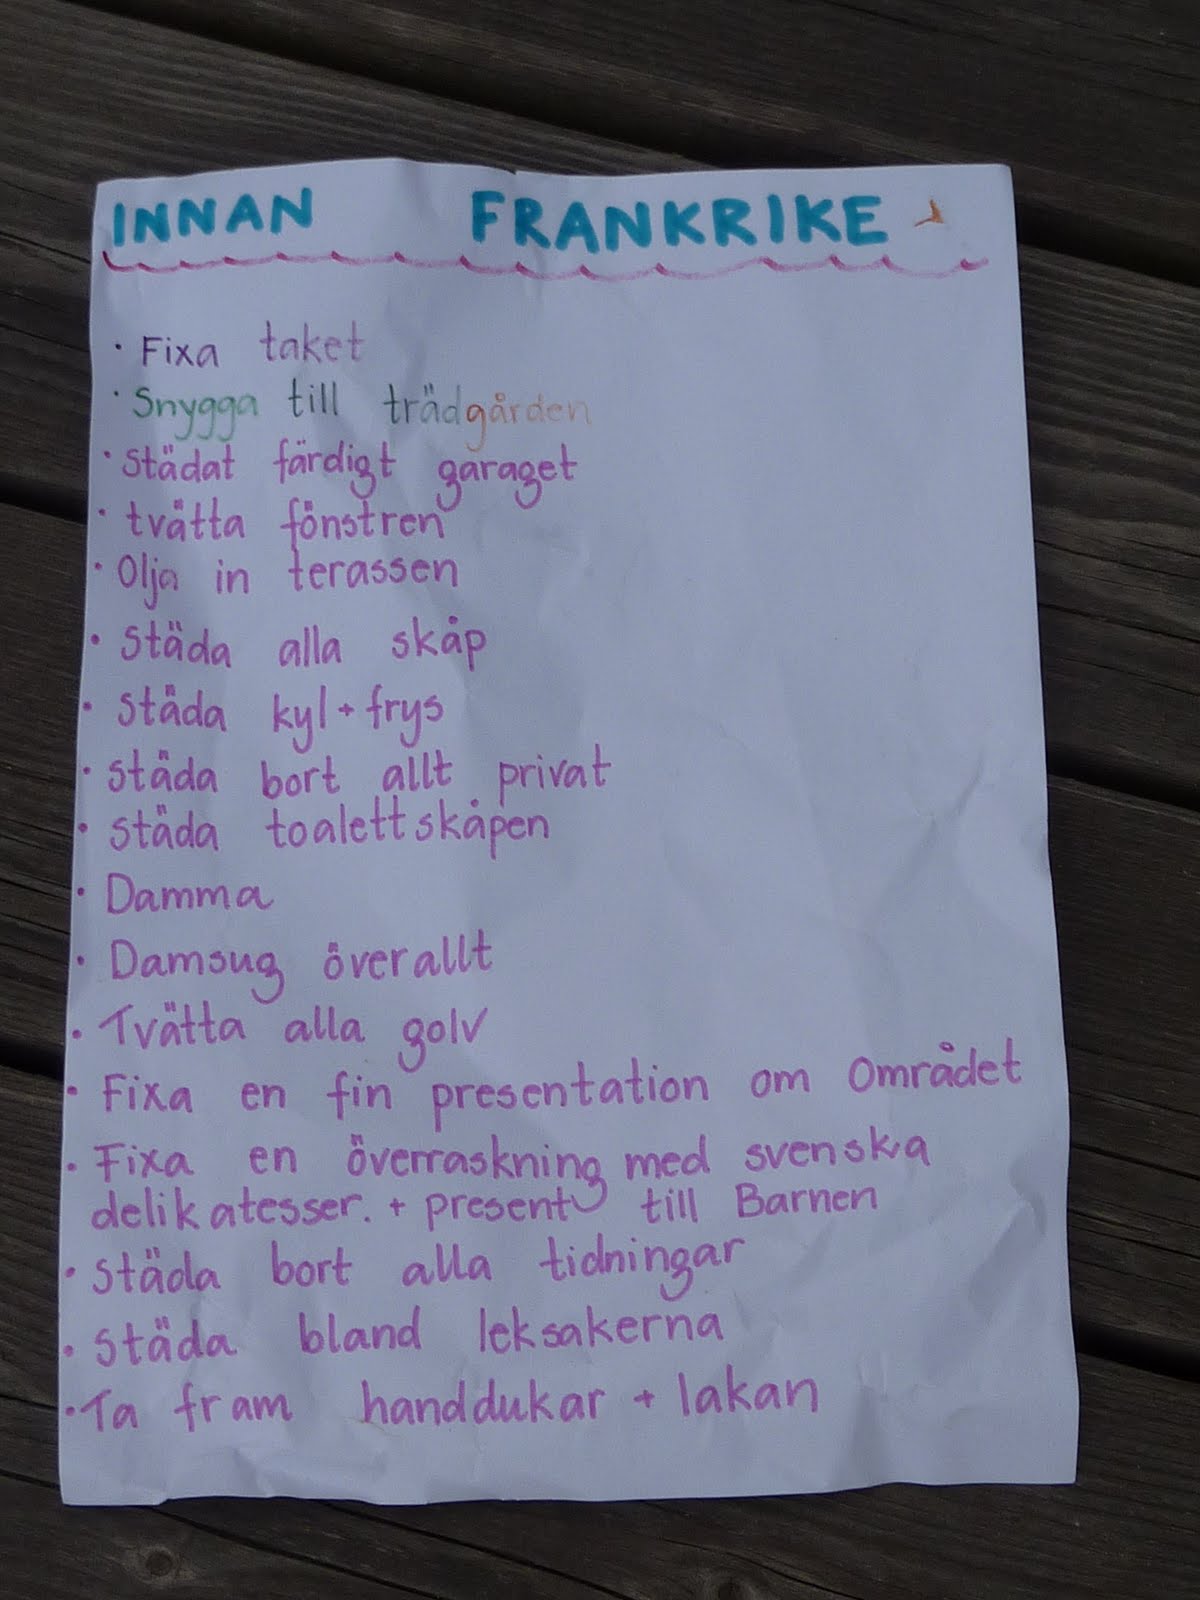 INNAN FRANKRIKE
· Fixa taket
· Snygga till trädgården
· Städat färdigt garaget
· tvätta fönstren
· Olja in terassen
· Städa alla skåp
· Städa kyl + frys
· Städa bort allt privat
· Städa toalettskåpen
· Damma
· Damsug överallt
· Tvätta alla golv
· Fixa en fin presentation om Området
· Fixa en överraskning med svenska
delikatesser. + present till Barnen
· Städa bort alla tidningar
· Städa bland leksakerna
· Ta fram handdukar + lakan